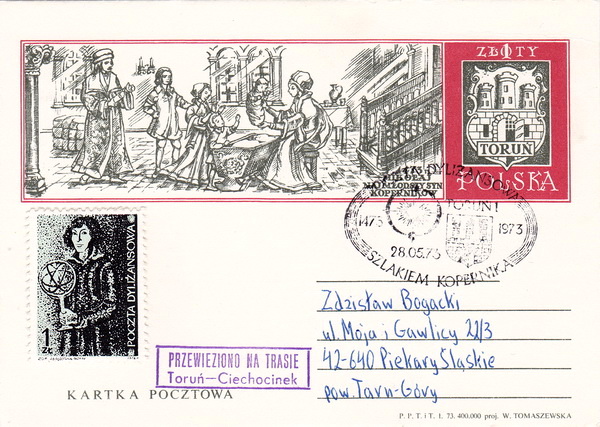 1 ZŁOTY
TORUŃ
POLSKA
MIKOŁAJ
NAJMŁODSZY SYN
KOPERNIKÓW
POCZTA DYLIŻANSOWA
TORUŃ 1
1473
1973
28.05.73
SZLAKIEM KOPERNIKA
POCZTA DYLIŻANSOWA
1
ZŁ
Zdzisław Bogacki
ul. Maja i Gawlicy 22/3
42-640 Piekary Śląskie
pow. Tarn-Góry
PRZEWIEZIONO NA TRASIE
Toruń—Ciechocinek
KARTKA POCZTOWA
P. P. T i T. 1. 73. 400.000 proj. W. TOMASZEWSKA